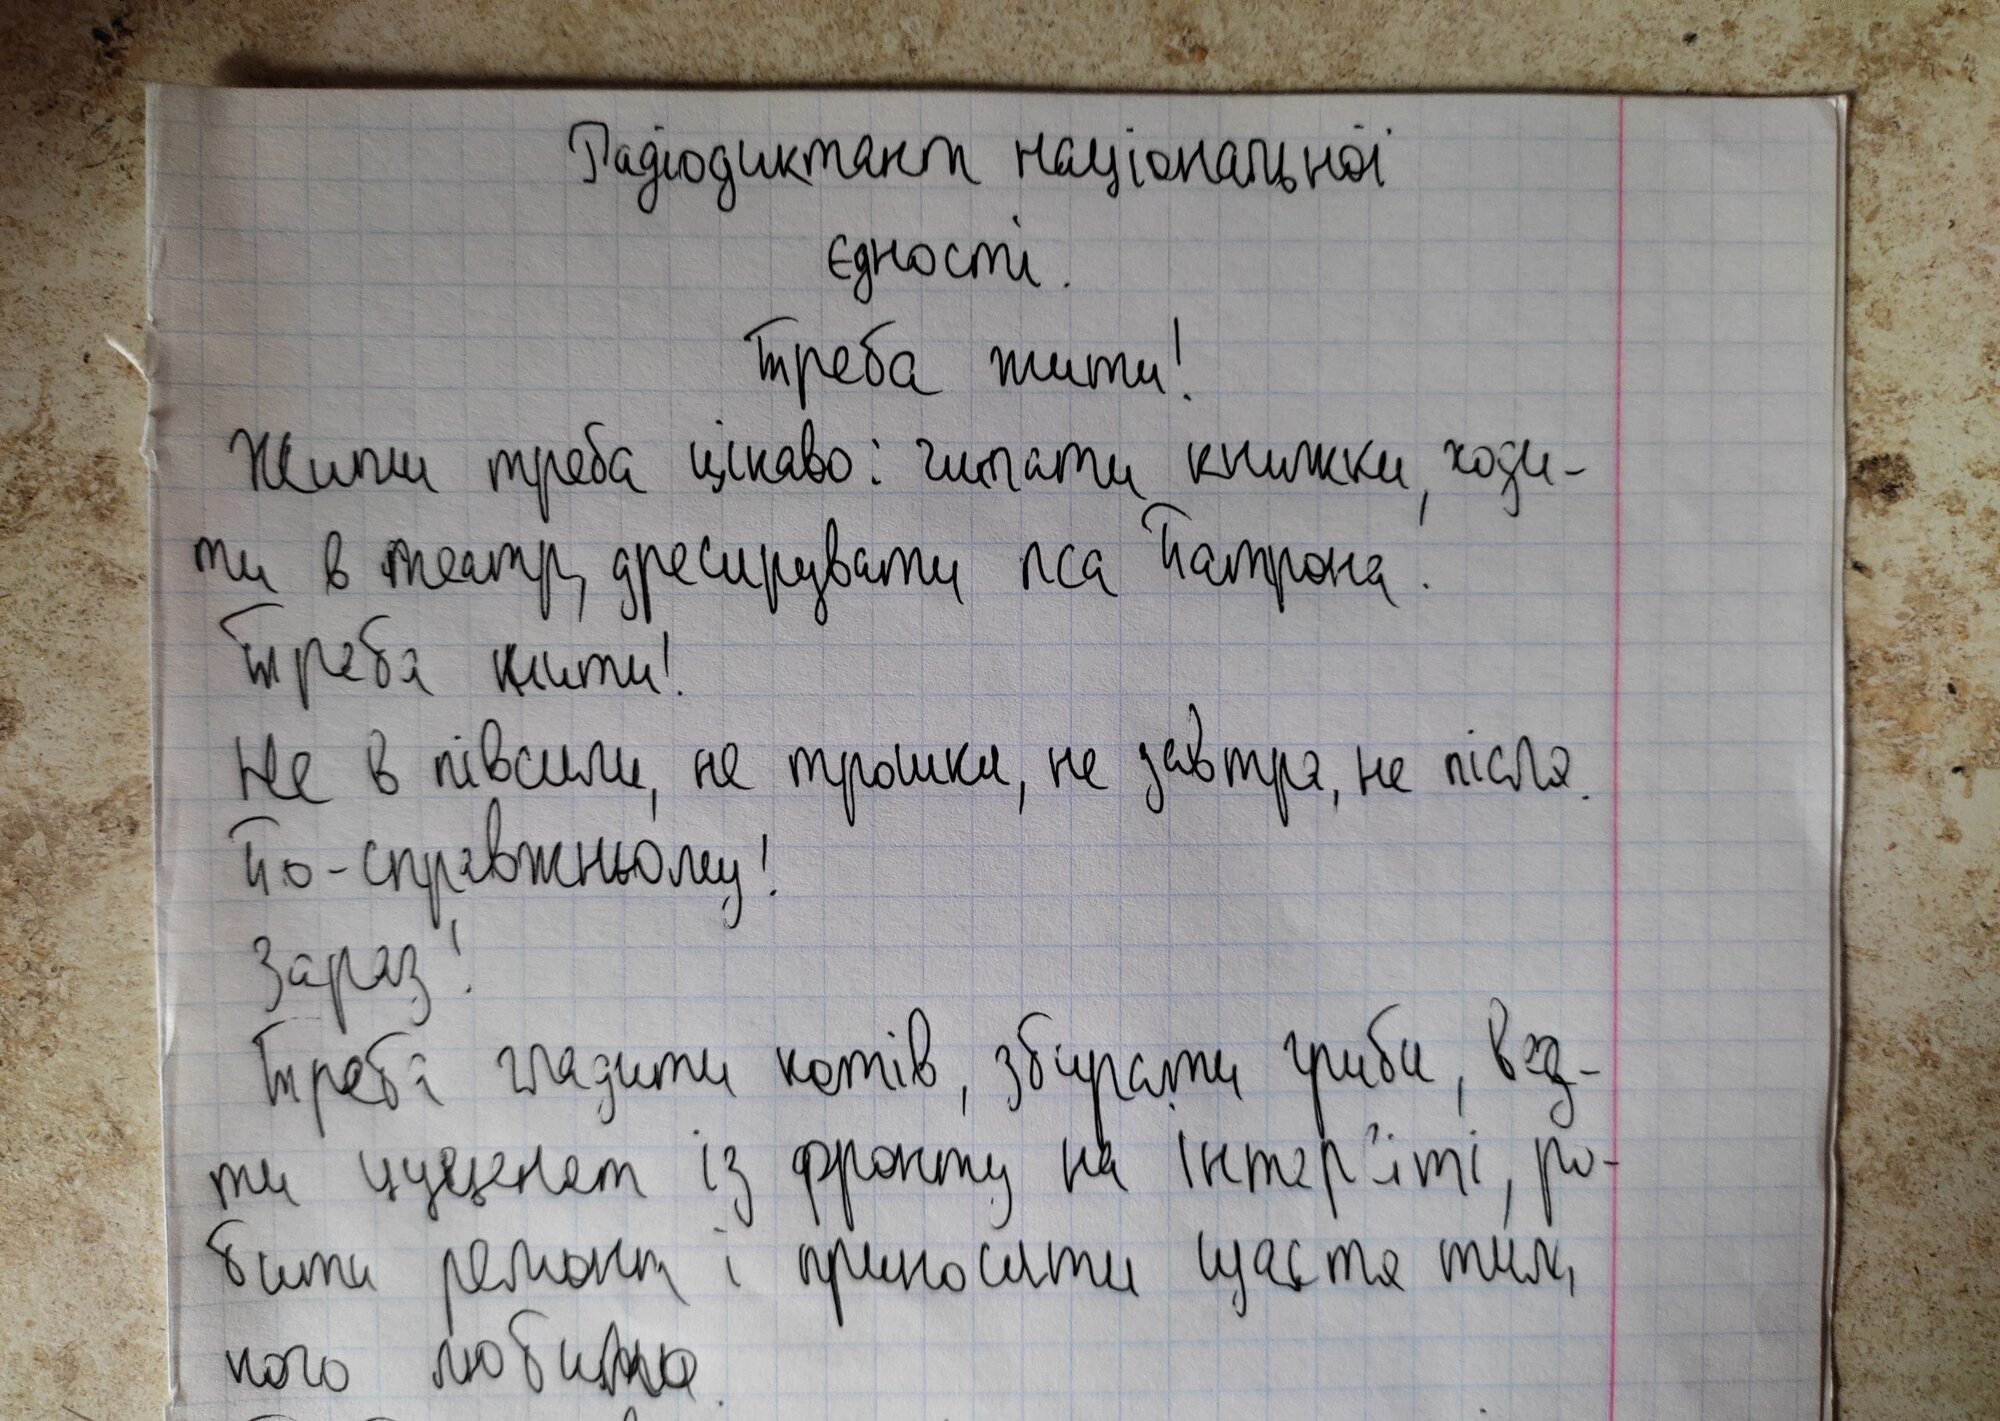 Радіодиктант національної
єдності.
Треба жити!
Жити треба цікаво: читати книжки, ходи-
ти в театр, дресирувати пса Патрона.
Треба жити!
Не в півсили, не трошки, не завтра, не після.
По-справжньому!
Зараз!
Треба гладити котів, збирати гриби, вез-
ти цуценят із фронту на інтерʼїті, ро-
бити ремонт і приносити щастя тим,
кого любимо.